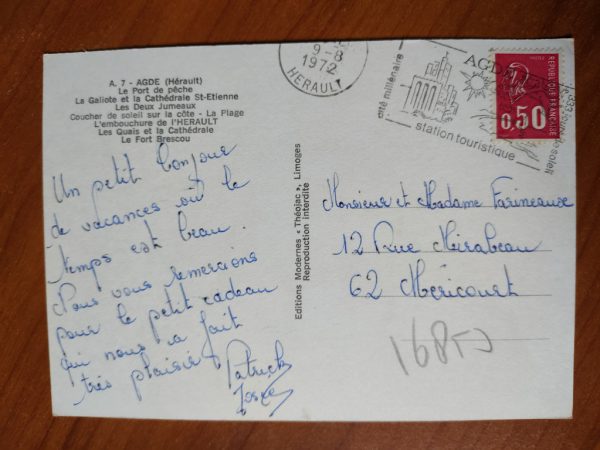 A. 7 - AGDE (Hérault)
Le Port de pêche
La Galiote et la Cathédrale St-Etienne
Les Deux Jumeaux
Coucher de soleil sur la côte - La Plage
L'embouchure de l'HERAULT
Les Quais et la Cathédrale
Le Fort Brescou
Un petit bonjour
de vacances où le
temps est beau.
Nous vous remercions
pour le petit cadeau
qui nous a fait
très plaisir
Patrick
Josée
Editions Modernes « Théojac », Limoges
Reproduction interdite
9-8
1972
HERAULT
cité millénaire
AGDE
station touristique
de soleil
REPUBLIQUE FRANÇAISE
0,50
Monsieur et Madame Farineaux
12 Rue Mirabeau
62 Méricourt